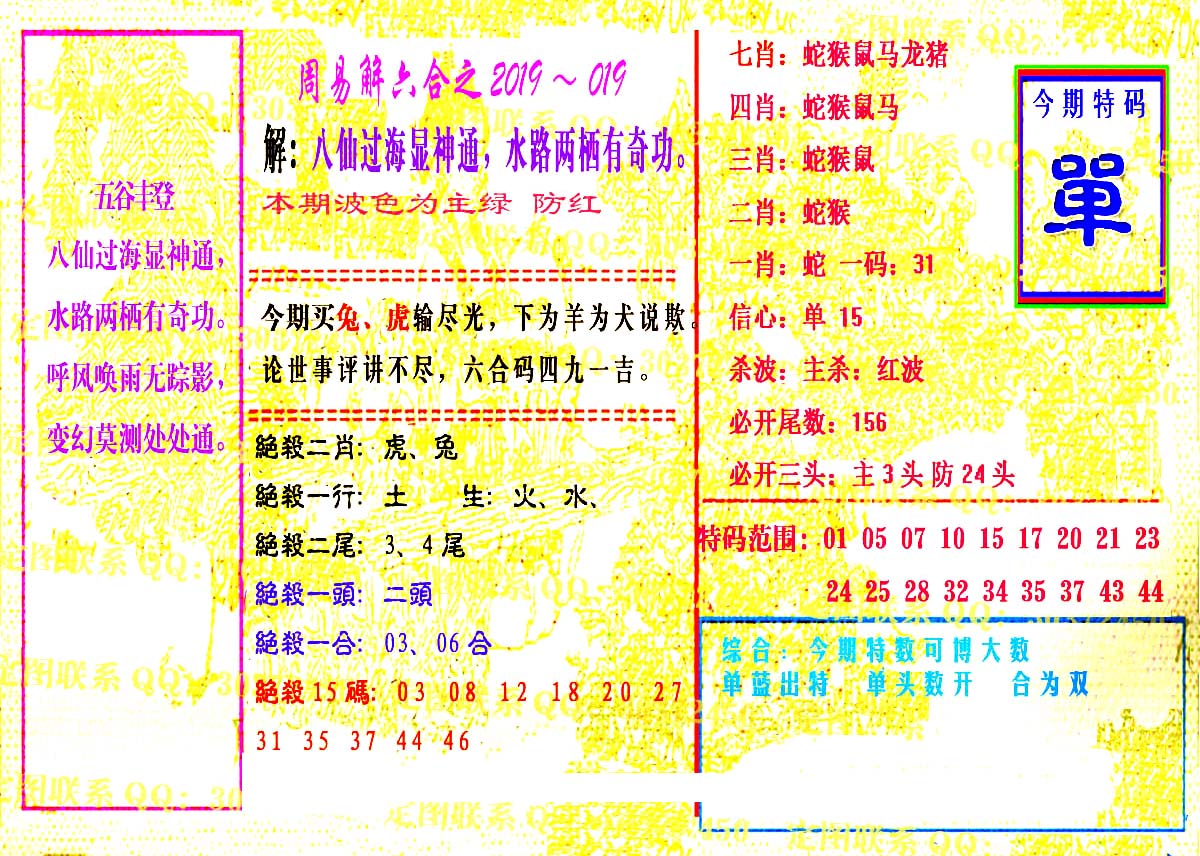 五谷丰登
八仙过海显神通，
水路两栖有奇功。
呼风唤雨无踪影，
变幻莫测处处通。
周易解六合之2019～019
解：八仙过海显神通，水路两栖有奇功。
本期波色为主绿 防红
今期买兔、虎输尽光，下为羊为犬说欺。
论世事评讲不尽，六合码四九一吉。
絕殺二肖：虎、兔
絕殺一行：土 生：火、水、
絕殺二尾：3、4尾
絕殺一頭：二頭
絕殺一合：03、06合
絕殺15碼：03 08 12 18 20 27
31 35 37 44 46
七肖：蛇猴鼠马龙猪
四肖：蛇猴鼠马
三肖：蛇猴鼠
二肖：蛇猴
一肖：蛇 一码：31
信心：单 15
杀波：主杀：红波
必开尾数：156
必开三头：主3头防24头
今期特码
單
特码范围：01 05 07 10 15 17 20 21 23
24 25 28 32 34 35 37 43 44
综合：今期特数可博大数
单蓝出特 单头数开 合为双